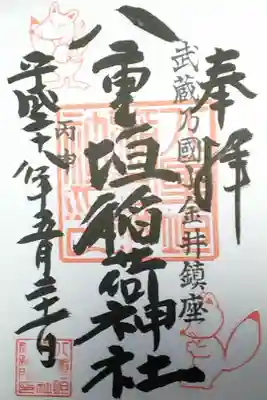 奉拝
武蔵乃國小金井鎮座
八重垣稲荷神社
丙申
平成二十八年五月二十二日